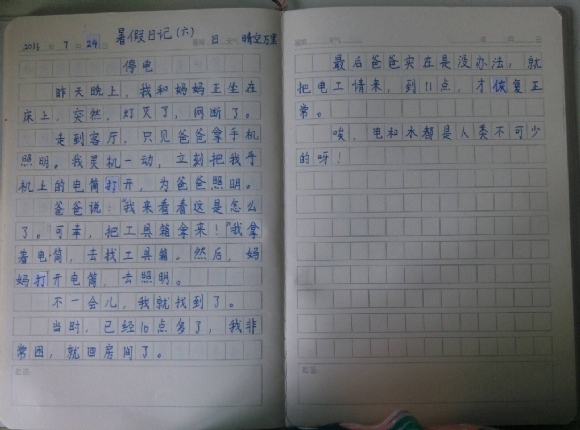 暑假日记(六)
2016年7月24日 星期日 天气晴空万里
停电
昨天晚上，我和妈妈正坐在
床上，突然，灯灭了，网断了。
走到客厅，只见爸爸拿手机
照明。我灵机一动，立刻把我手
机上的电筒打开，为爸爸照明。
爸爸说："我来看看这是怎么
了。可幸，把工具箱拿来！"我拿
着电筒，去找工具箱。然后，妈
妈打开电筒，去照明。
不一会儿，我就找到了。
当时，已经10点多了，我非
常困，就回房间了。
最后爸爸实在是没办法，就
把电工请来，到11点，才恢复正
常。
唉，电和水都是人类不可少
的呀！